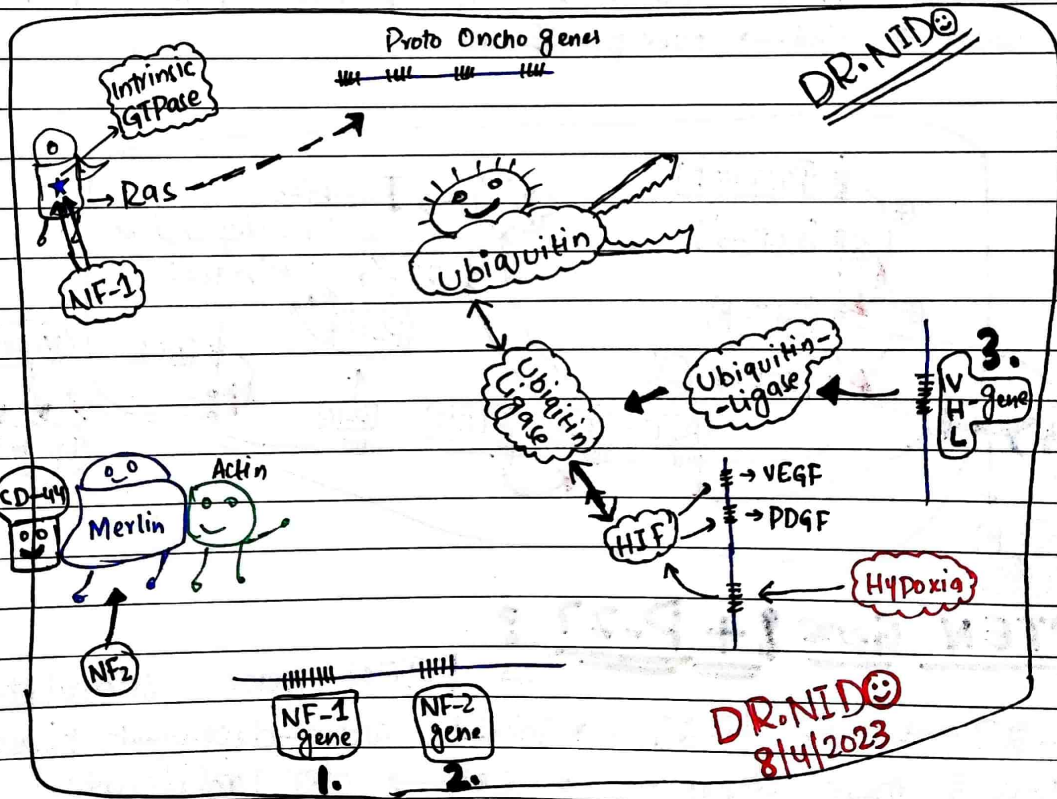 Proto Oncho genes
DR.NIDO
Intrinsic
GTPase
Ras
NF-1
Ubiquitin
Ubiqitin
Ligase
Ubiquitin-
-Ligase
3.
VHL-gene
CD-44
Merlin
Actin
VEGF
PDGF
HIF
Hypoxia
NF2
NF-1
gene
1.
NF-2
gene
2.
DR.NIDO
8/4/2023